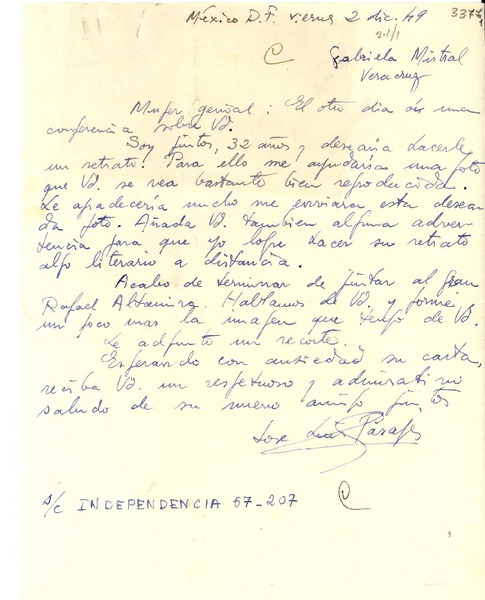 México D.F. viernes 2 dic. 49 3377
Gabriela Mistral
Veracruz
Mujer genial: El otro dia di una
conferencia sobre Vd.
Soy pintor, 32 años y desearia hacerle
un retrato. Para ello me ayudaria una foto
que Vd. se vea bastante bien reproducida.
Le agradeceria mucho me enviara esta desea
da foto. Añada Vd. tambien alguna adver
tencia para que yo logre hacer su retrato
algo literario a distancia.
Acabo de terminar de pintar al gran
Rafael Altamira. Hablamos de Vd. y formé
un poco mas la imagen que tengo de Vd.
Le adjunto un recorte.
Esperando con ansiedad su carta,
reciba Vd. un respetuoso y admirativo
saludo de su nuevo amigo pintor
Jose Luis
s/c INDEPENDENCIA 67-207